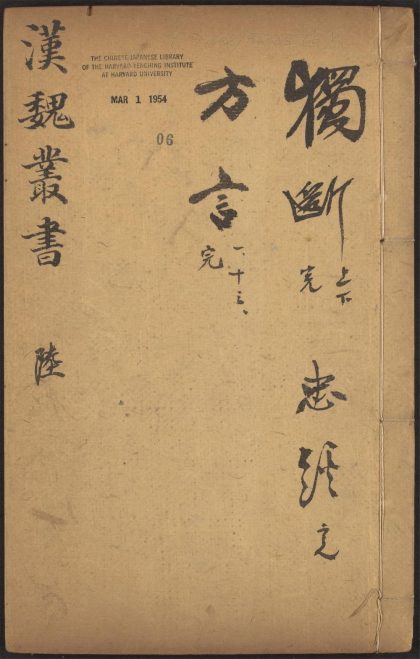 獨斷 上下完 忠經完
方言 一、十三、完
漢魏叢書 陸
THE CHINESE-JAPANESE LIBRARY
OF THE HARVARD-YENCHING INSTITUTE
AT HARVARD UNIVERSITY
MAR 1 1954
06